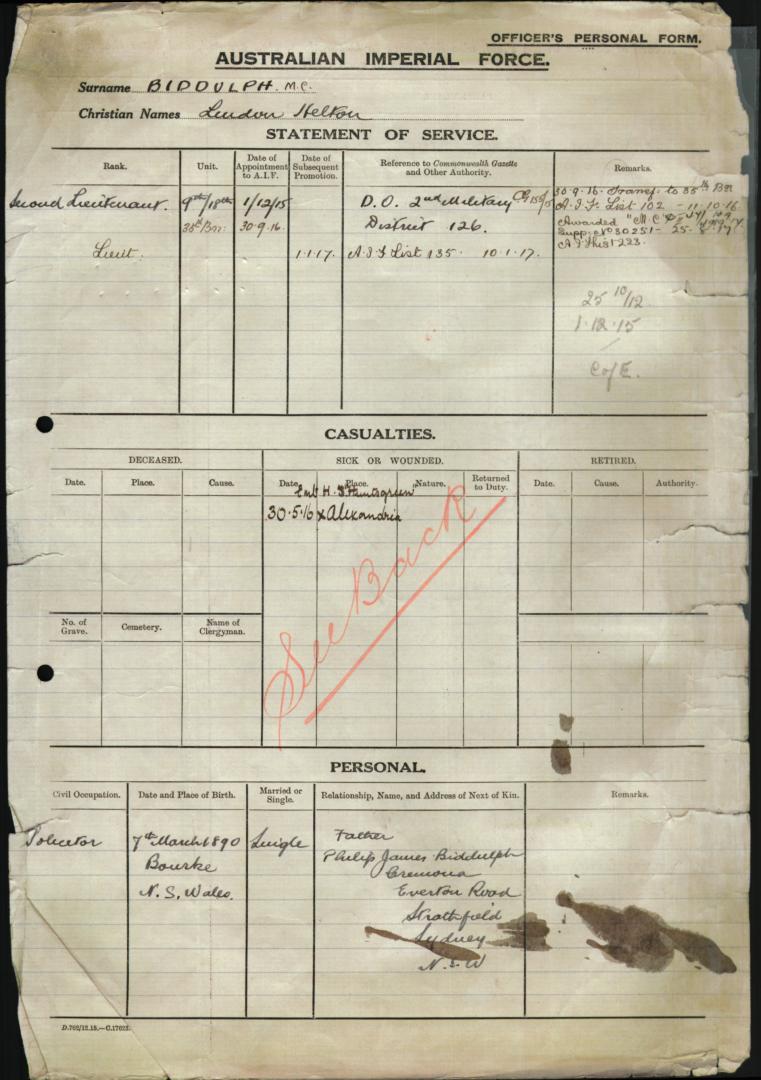 OFFICER'S PERSONAL FORM.
AUSTRALIAN IMPERIAL FORCE.
Surname BIDDULPH. M.C.
Christian Names
STATEMENT OF SERVICE.
Rank. Unit. Date of Appointment to A.I.F. Date of Subsequent Promotion. Reference to Commonwealth Gazette and Other Authority. Remarks.
Second Lieutenant. 9th/18th 1/12/15 D.O. 2nd Military
District 126.
30·9·16 Transf. to 35th Bn
A.I.F. List 102 - 11·10·16
Awarded "M.C"
Supp. No 30251 - 25·8·17
35th Bn: 30·9·16
Lieut: 1·1·17. A.I.F List 135. 10·1·17.
25 10/12
1·12·15
C of E.
CASUALTIES.
DECEASED. SICK OR WOUNDED. RETIRED.
Date. Place. Cause. Date. Place. Nature. Returned to Duty. Date. Cause. Authority.
30·5·16 Alexandria
See Back
No. of Grave. Cemetery. Name of Clergyman.
PERSONAL.
Civil Occupation. Date and Place of Birth. Married or Single. Relationship, Name, and Address of Next of Kin. Remarks.
Solicitor 7th March 1890 Single Father
Philip James Biddulph
Bourke Cremona
N.S. Wales. Everton Road
Strathfield
Sydney
N.S.W
D.762/12.15.—C.17625.